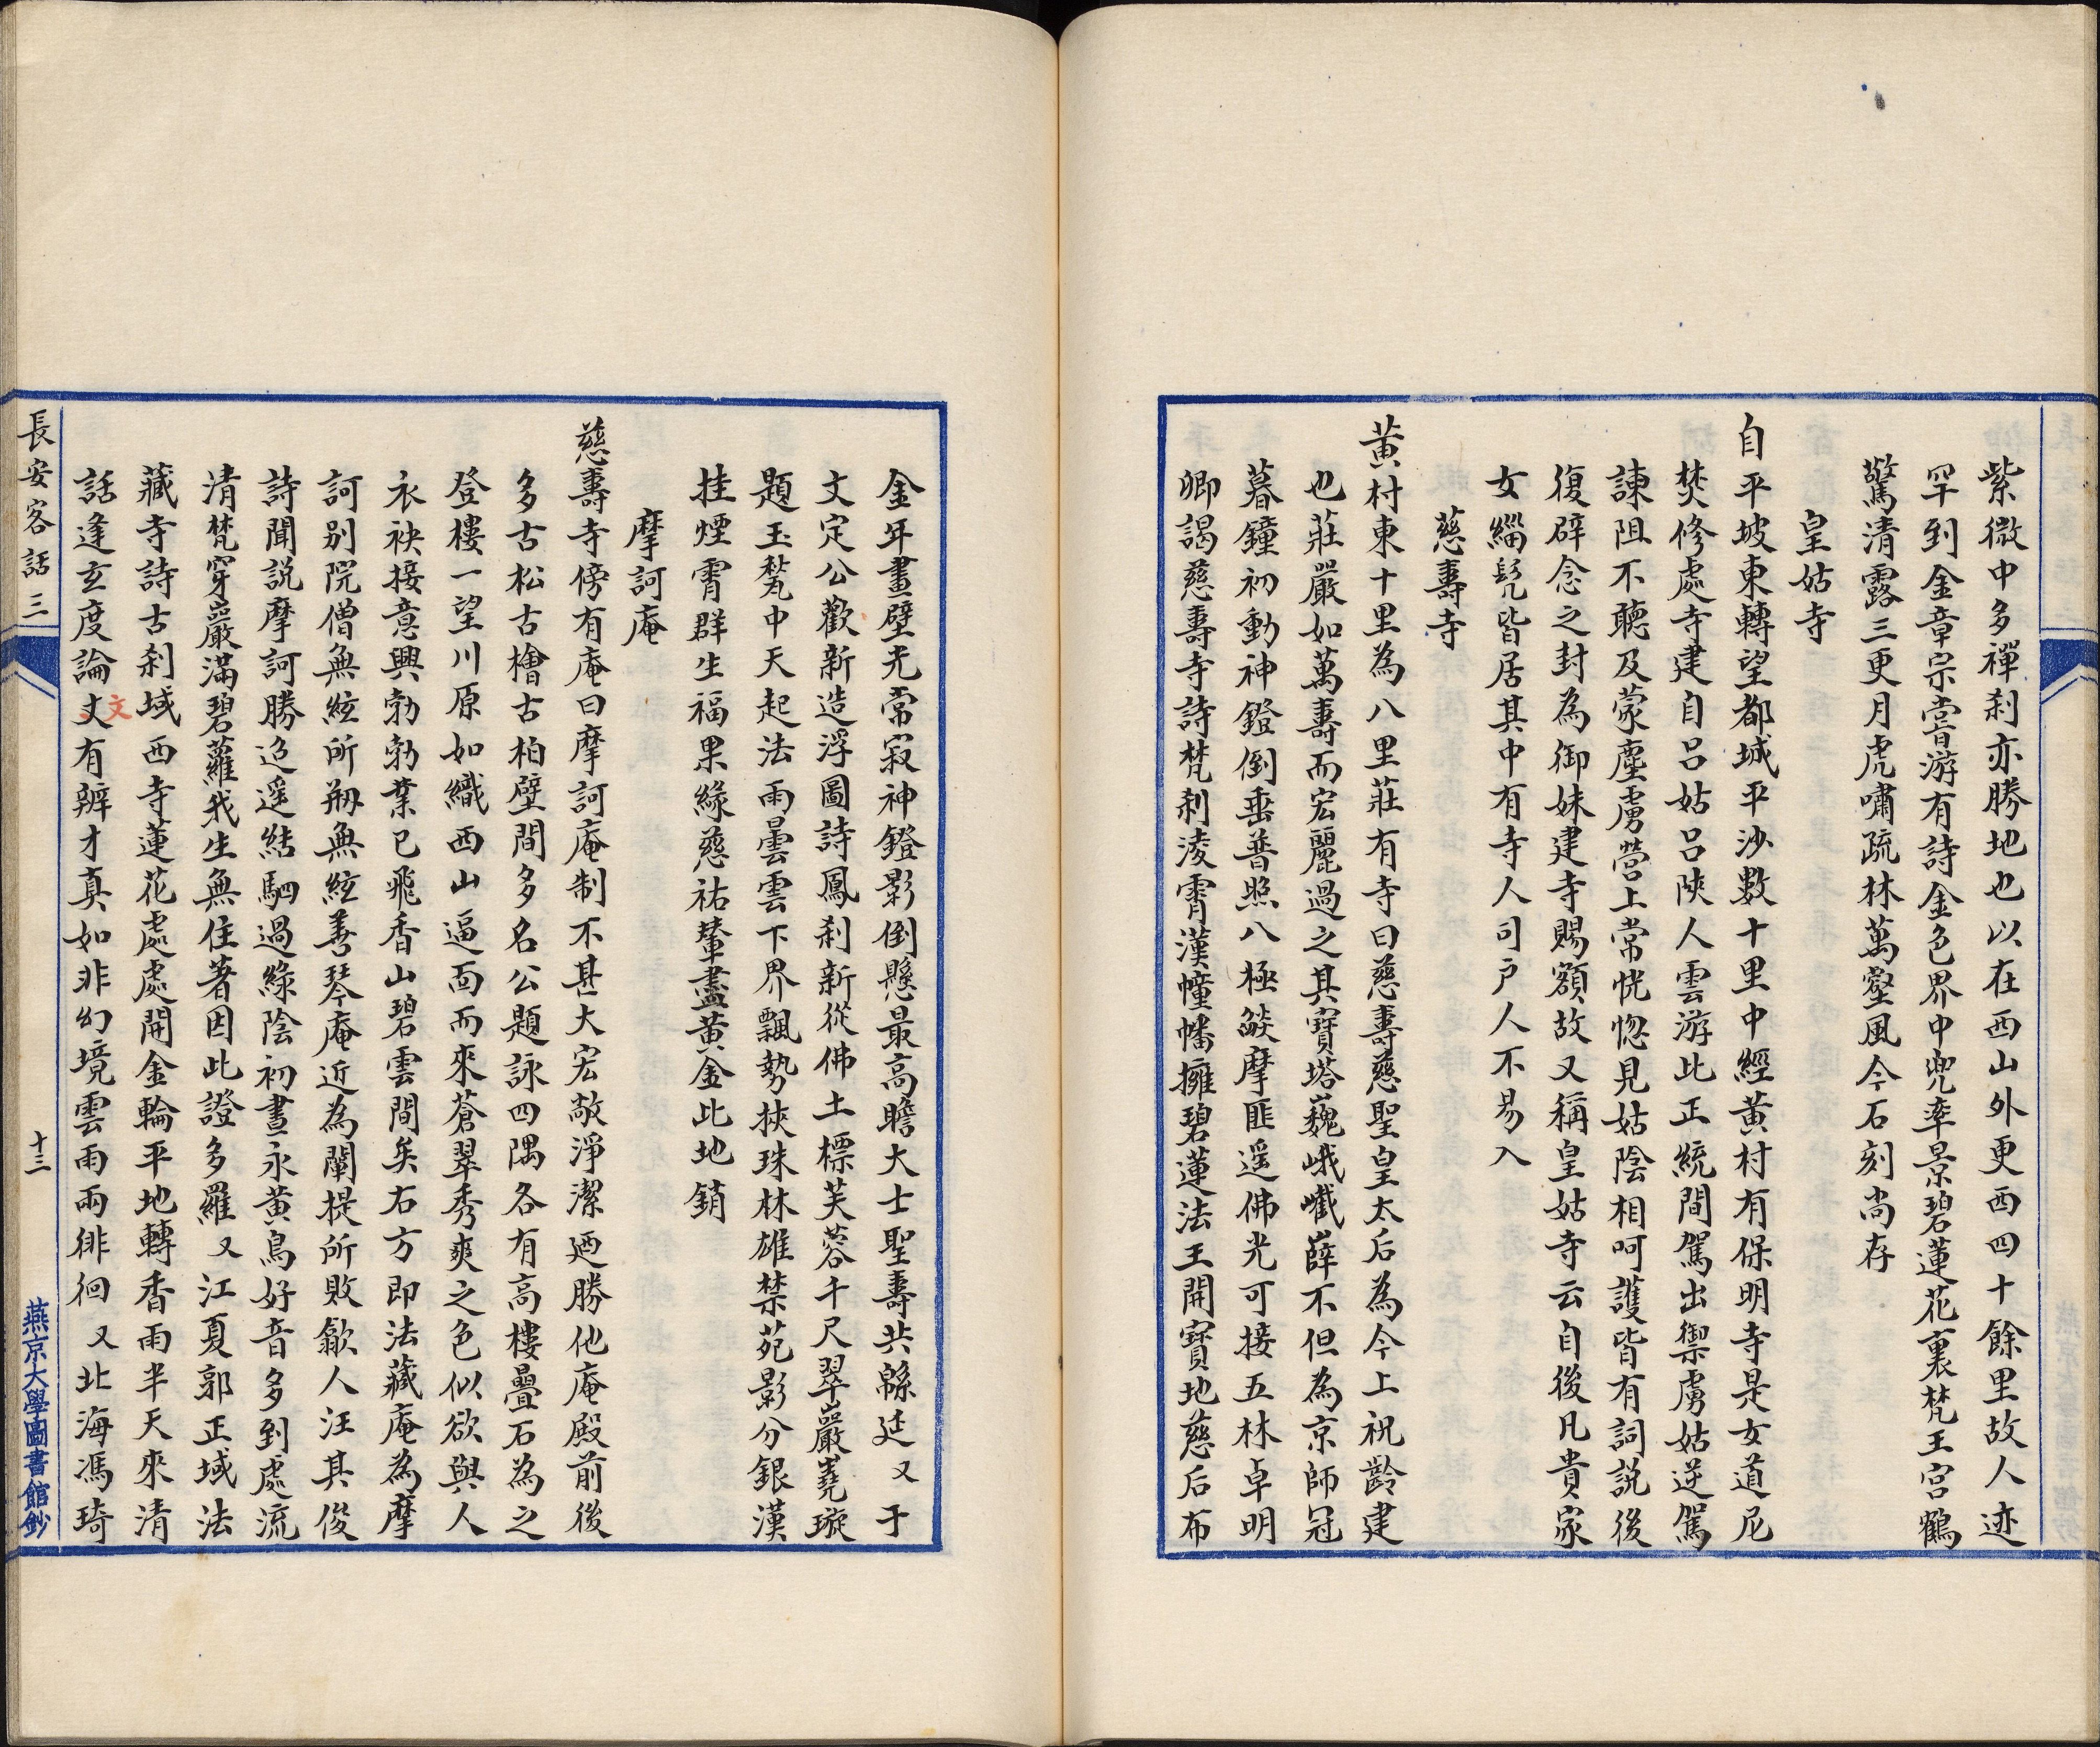 紫微中多禪刹亦勝地也以在西山外更西四十餘里故人迹
罕到金章宗嘗游有詩金色界中兜率景碧蓮花裏梵王宮鶴
驚清露三更月虎嘯疏林萬壑風今石刻尚存
皇姑寺
自平坡東轉望都城平沙數十里中經黃村有保明寺是女道尼
焚修處寺建自呂姑呂陝人雲游此正統間駕出禦虜姑逆駕
諫阻不聽及蒙塵虜營上常恍惚見姑陰相呵護皆有詞説後
復辟念之封為御妹建寺賜額故又稱皇姑寺云自後凡貴家
女緇髡皆居其中有寺人司户人不易入
慈壽寺
黃村東十里為八里莊有寺曰慈壽慈聖皇太后為今上祝齡建
也莊嚴如萬壽而宏麗過之其寶塔巍峨巀嶭不但為京師冠
暮鐘初動神鐙倒垂普照八極燄摩匪遥佛光可接五林卓明
卿謁慈壽寺詩梵刹淩霄漢幢幡擁碧蓮法王開寶地慈后布
金年畫壁光常寂神鐙影倒懸最高瞻大士聖壽共緜延又于
文定公歡新造浮圖詩鳳刹新從佛土標芙蓉千尺翠巖嶤璇
題玉甃中天起法雨曇雲下界飄勢挾珠林雄禁苑影分銀漢
挂煙霄群生福果緣慈祐輦盡黃金此地銷
摩訶庵
慈壽寺傍有庵曰摩訶庵制不甚大宏敞淨潔迺勝他庵殿前後
多古松古檜古柏壁間多名公題詠四隅各有高樓疊石為之
登樓一望川原如織西山逼面而來蒼翠秀爽之色似欲與人
衣袂接意興勃勃業已飛香山碧雲間矣右方即法藏庵為摩
訶别院僧無絃所剏無絃善琴庵近為闡提所敗歙人汪其俊
詩聞説摩訶勝迢遥結駟過綠陰初晝永黃鳥好音多到處流
清梵穿巖滿碧蘿我生無住著因此證多羅又江夏郭正域法
藏寺詩古刹域西寺蓮花處處開金輪平地轉香雨半天來清
話逢玄度論丈文有辨才真如非幻境雲雨兩徘徊又北海馮琦
長安客話三
十三
燕京大學圖書館鈔